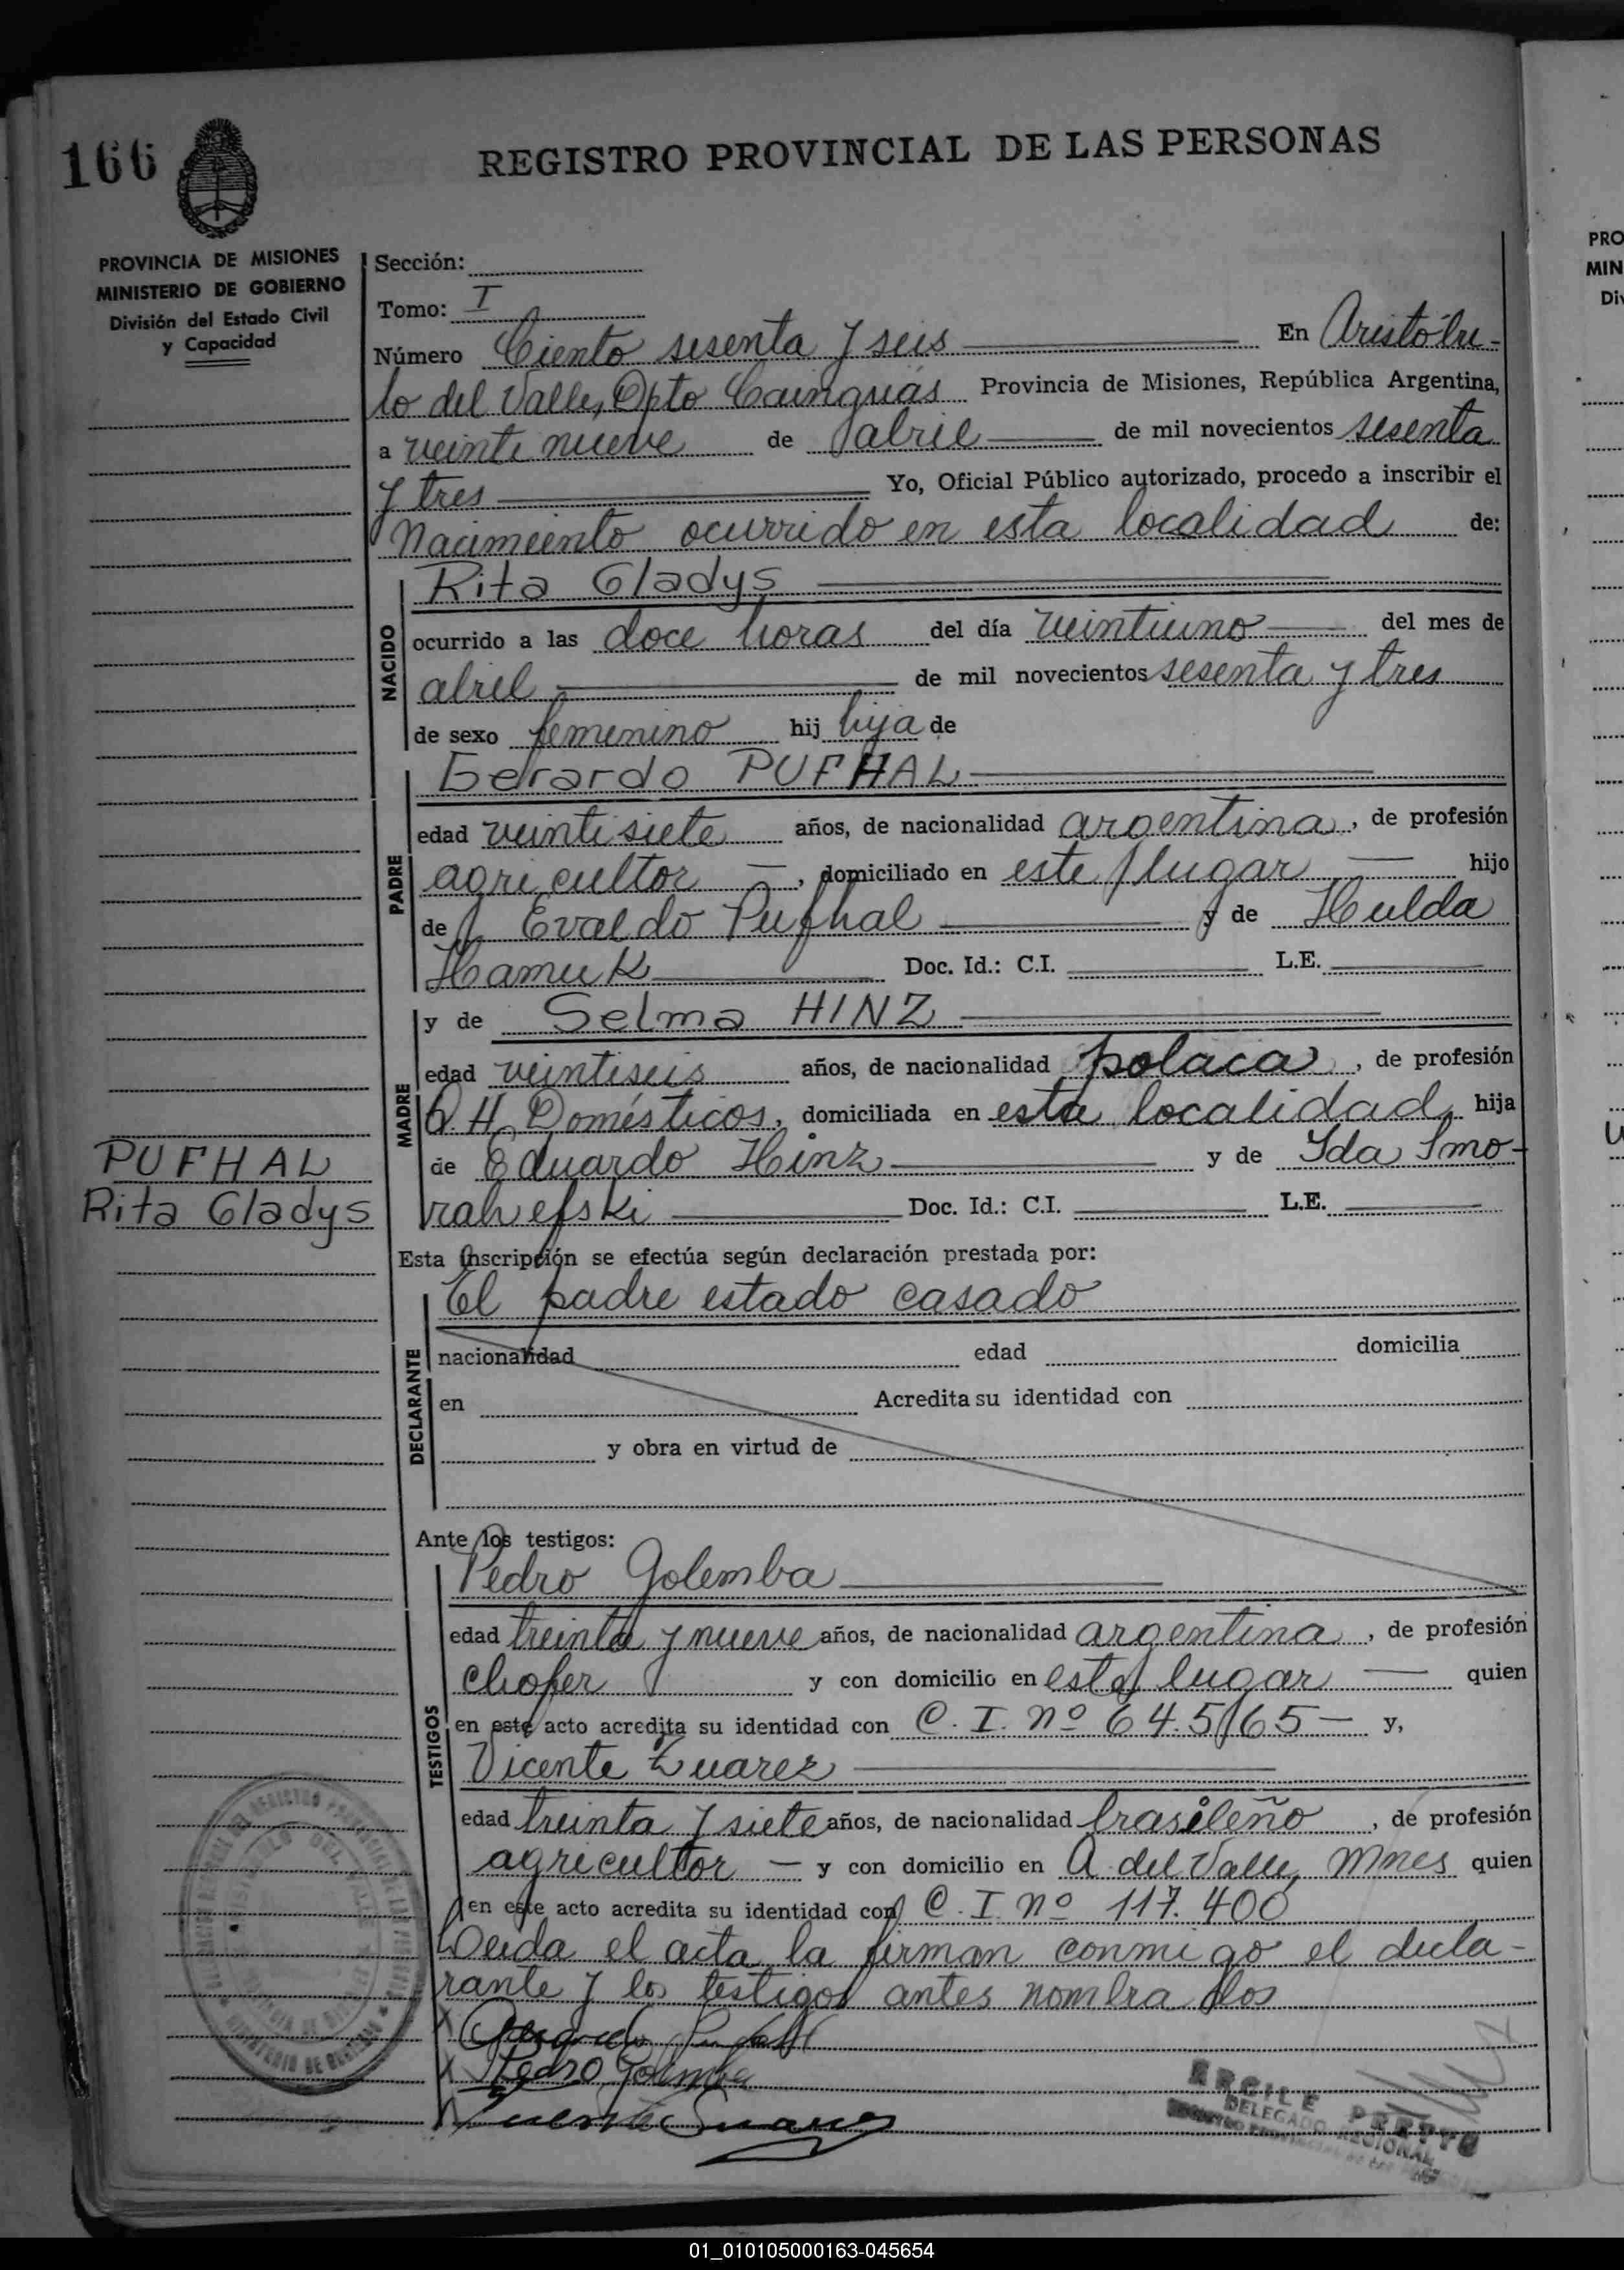 166
REGISTRO PROVINCIAL DE LAS PERSONAS
PROVINCIA DE MISIONES
MINISTERIO DE GOBIERNO
División del Estado Civil
y Capacidad
Sección:
Tomo: I
Número Ciento sesenta y seis En Aristóbu-
lo del Valle, Dpto Cainguás Provincia de Misiones, República Argentina,
a veinte nueve de abril de mil novecientos sesenta
y tres Yo, Oficial Público autorizado, procedo a inscribir el
Nacimiento ocurrido en esta localidad de:
NACIDO
Rita Gladys
ocurrido a las doce horas del día veintiuno del mes de
abril de mil novecientos sesenta y tres
de sexo femenino hij hija de
PADRE
Gerardo PUFHAL
edad veintisiete años, de nacionalidad argentina, de profesión
agricultor, domiciliado en este lugar hijo
de Evaldo Pufhal y de Hulda
Hamuk Doc. Id.: C.I. L.E.
MADRE
y de Selma HINZ
edad veintiseis años, de nacionalidad polaca, de profesión
Q. H. Domésticos, domiciliada en esta localidad, hija
de Eduardo Hinz y de Ida Smo-
Doc. Id.: C.I. L.E.
PUFHAL
Rita Gladys
Esta inscripción se efectúa según declaración prestada por:
DECLARANTE
El padre estado casado
nacionalidad edad domicilia
en Acredita su identidad con
y obra en virtud de
Ante los testigos:
TESTIGOS
Pedro Golemba
edad treinta y nueve años, de nacionalidad argentina, de profesión
chofer y con domicilio en este lugar quien
en este acto acredita su identidad con C. I. nº 64.565 y,
Vicente Zuarez
edad treinta y siete años, de nacionalidad brasileño, de profesión
agricultor y con domicilio en A. del Valle, Mnes quien
en este acto acredita su identidad con C. I. nº 117.400
Leida el acta la firman conmigo el decla-
rante y los testigos antes nombrados
Pedro Golemba
DELEGADO REGIONAL
01_010105000163-045654